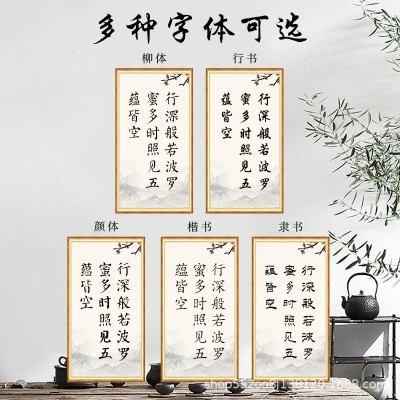 多种字体可选
柳体
行深般若波罗
蜜多时照见五
蕴皆空
行书
行深般若波罗
蜜多时照见五
蕴皆空
颜体
行深般若波罗
蜜多时照见五
蕴皆空
楷书
行深般若波罗
蜜多时照见五
蕴皆空
隶书
行深般若波罗
蜜多时照见五
蕴皆空